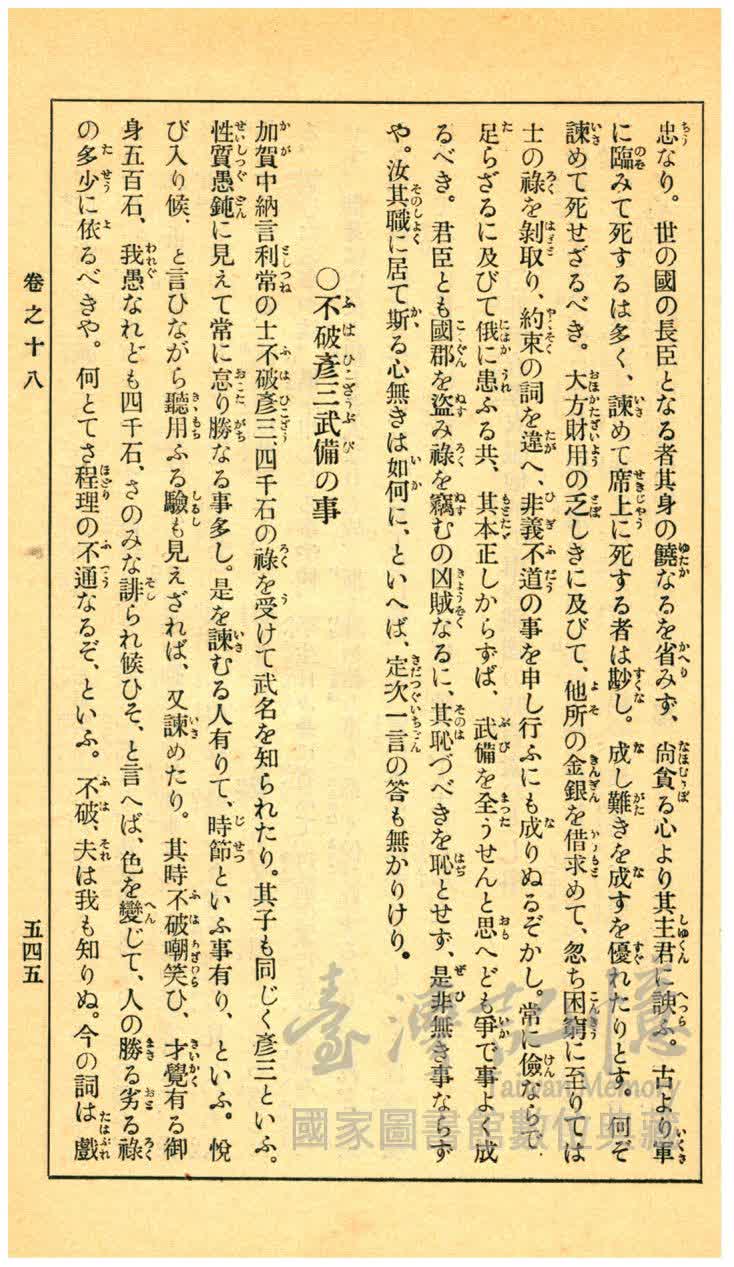 忠なり。世の國の長臣となる者其身の饒なるを省みず、尙貪る心より其主君に諛ふ。古より軍
に臨みて死するは多く、諫めて席上に死する者は尠し。成し難きを成すを優れたりとす。何ぞ
諫めて死せざるべき。大方財用の乏しきに及びて、他所の金銀を借求めて、忽ち困窮に至りては
士の祿を剝取り、約束の詞を違へ、非義不道の事を申し行ふにも成りぬるぞかし。常に儉ならで
足らざるに及びて俄に患ふる共、其本正しからずば、武備を全うせんと思へども爭で事よく成
るべき。君臣とも國郡を盜み祿を竊むの凶賊なるに、其恥づべきを恥とせず、是非無き事ならず
や。汝其職に居て斯る心無きは如何に、といへば、定次一言の答も無かりけり。
○不破彥三武備の事
加賀中納言利常の士不破彥三、四千石の祿を受けて武名を知られたり。其子も同じく彥三といふ。
性質愚鈍に見えて常に怠り勝なる事多し。是を諫むる人有りて、時節といふ事有り、といふ。悅
び入り候、と言ひながら聽用ふる驗も見えざれば、又諫めたり。其時不破嘲笑ひ、才覺有る御
身五百石、我愚なれども四千石、さのみな誹られ候ひそ、と言へば、色を變じて、人の勝る劣る祿
の多少に依るべきや。何とてさ程理の不通なるぞ、といふ。不破、夫は我も知りぬ。今の詞は戲
卷之十八
五四五
臺灣記憶
Taiwan Memory
國家圖書館數位典藏